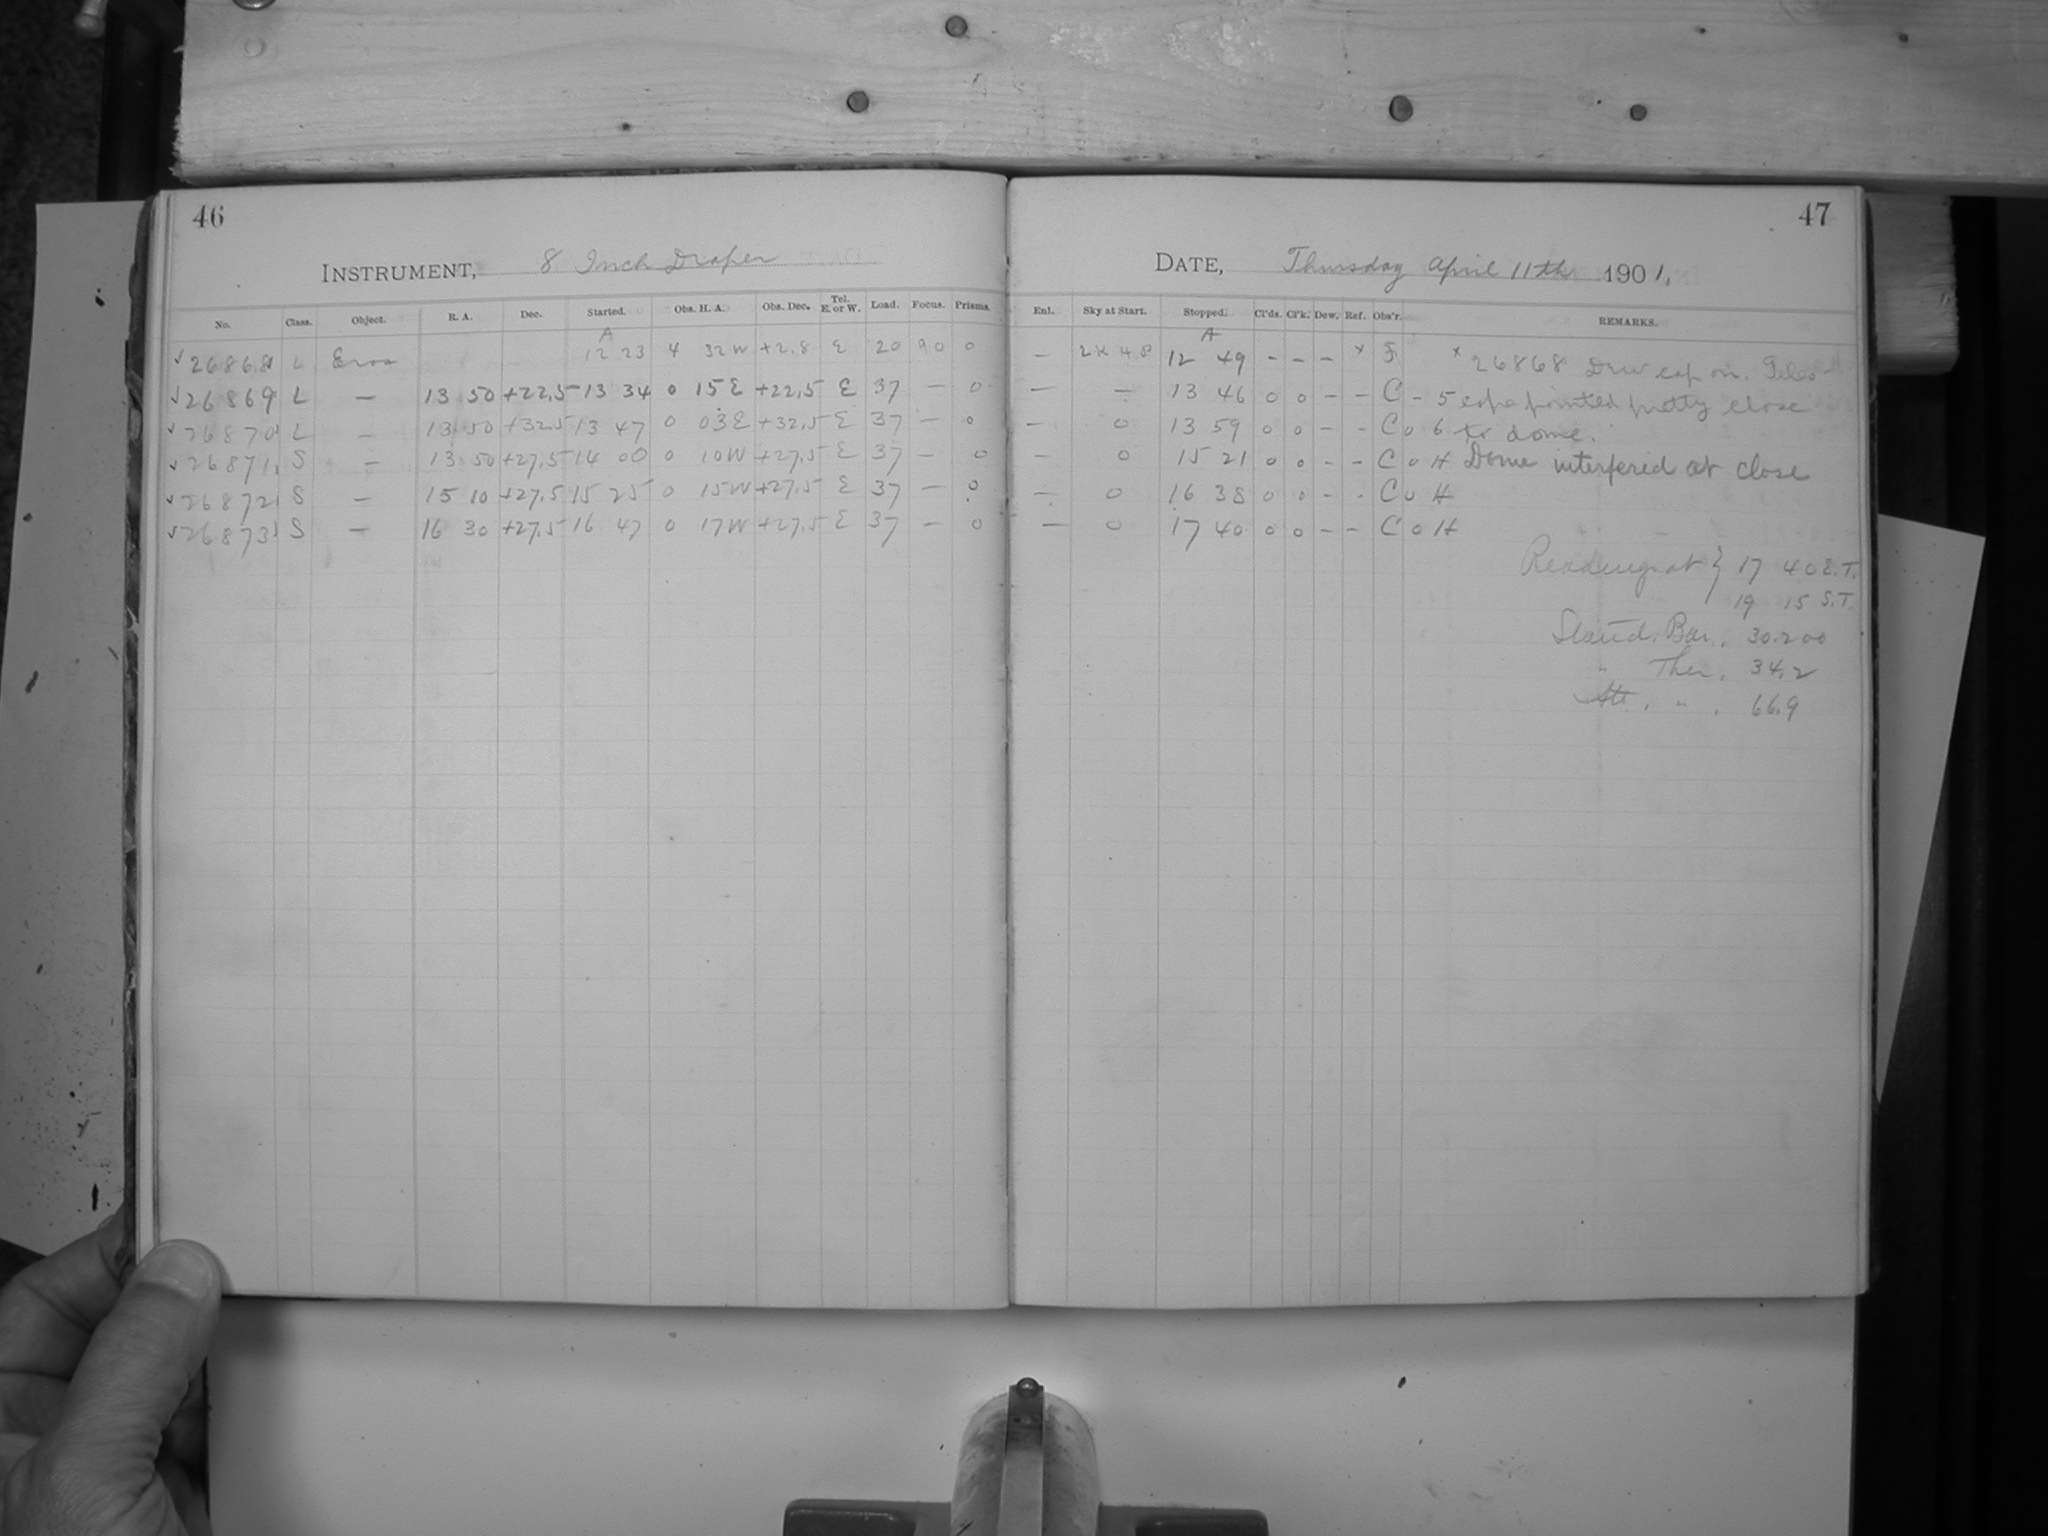 46
INSTRUMENT, 8 Inch Draper
No. Class. Object. R. A. Dec. Started. Obs. H. A. Obs. Dec. Tel. E. or W. Load. Focus. Prisms.
A
√26868 L Eros 12 23 4 32W +2.8 E 20 90 0
√26869 L — 13 50 +22.5 13 34 0 15E +22.5 E 37 — 0
√26870 L — 13 50 +32.5 13 47 0 03E +32.5 E 37 — 0
√26871 S — 13 50 +27.5 14 00 0 10W +27.5 E 37 — 0
√26872 S — 15 10 +27.5 15 25 0 15W +27.5 E 37 — 0
√26873 S — 16 30 +27.5 16 47 0 17W +27.5 E 37 — 0
47
DATE, Thursday April 11th 1901.
Enl. Sky at Start. Stopped. Cl'ds. Cl'k. Dew. Ref. Obs'r. REMARKS.
A
— 12 49 – – – x F x 26868 Dew cap on. Teles-
— — 13 46 0 0 – – C – 5 cope pointed pretty close
— 0 13 59 0 0 – – C 0 6 to dome.
— 0 15 21 0 0 – – C 0 H Dome interfered at close
— 0 16 38 0 0 – – C 0 H
— 0 17 40 0 0 – – C 0 H
Readings at } 17 40 E.T.
19 15 S.T.
Stand. Bar. 30.200
" Ther. 34.2
Att. " . 66.9